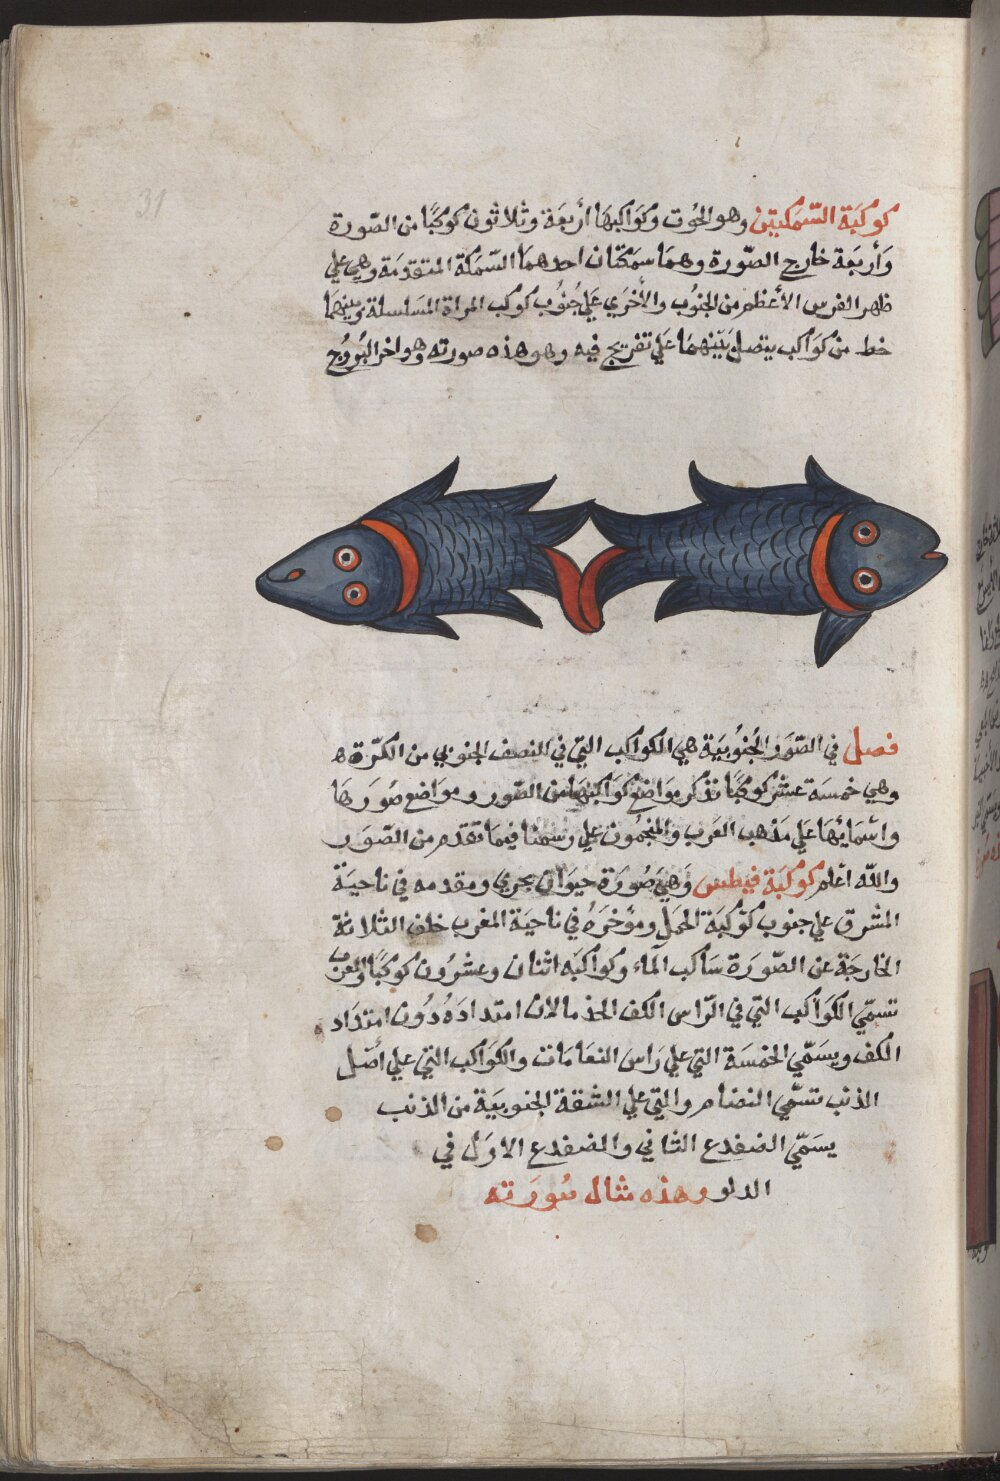 31
كوكبة السّمكتين وهو الحُوت وكَوَاكبهَا أربعَة وثلاثون كوكبًا من الصّورة
وَأربعَة خارج الصّورة وهمَا سمَكتان احدهمَا السّمَكة المتقدمَة وهي علي
ظهر الفرس الأعظم من الجنُوب والأخرَي عَلي جُنُوب كوكب المراة المسَلسلة وبينهمَا
خط من كوَاكب يتصل بَيْنهمَا عَلي تفريج فيه وهو هذه صورته وهو اخر البُرُوج
فصل في الصّوَر الجُنُوبيَة هي الكوَاكب التي في النصف الجنوبي من الكرّة ه
وهي خمسَة عشر كوكبًا نذكر موَاضع كوَاكبهَا من الصّور ومَوَاضع صُوَرهَا
واسْمَائهَا عَلي مَذهب العَرب والمنجمُون علي رسْمنا فيمَا تقدم من الصّوَر
والله اعْلم كوكبَة قيطس وَهيَ صُورَة حيوَان بحري ومقدمه في ناحيَة
المشرق علي جنوب كوكبَة الحمَل ومؤخرَهُ في ناحيَة المغرب خلف الثلاثة
الخارجَة عن الصّورَة سَاكب المآء وكوَاكبَه اثنان وعشرُون كوكبًا والعرَب
تسمّي الكوَاكب التي في الرّاس الكف الجذما لان امتدَادَهُ دُون امتدَاد
الكف ويسَمّي الخمسَة التي علي رَاس النعَامَات والكوَاكب التي علي أصْل
الذنب تسمّي النضام والتي علي الشقة الجنوبيَة من الذنب
يسَمّي الضفدع الثاني والضفدع الاوَل في
الدلو وهذه مثال صُورَته